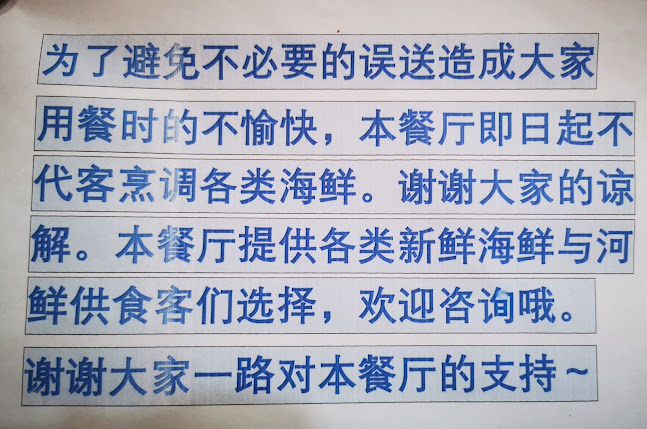 为了避免不必要的误送造成大家
用餐时的不愉快，本餐厅即日起不
代客烹调各类海鲜。谢谢大家的谅
解。本餐厅提供各类新鲜海鲜与河
鲜供食客们选择，欢迎咨询哦。
谢谢大家一路对本餐厅的支持～